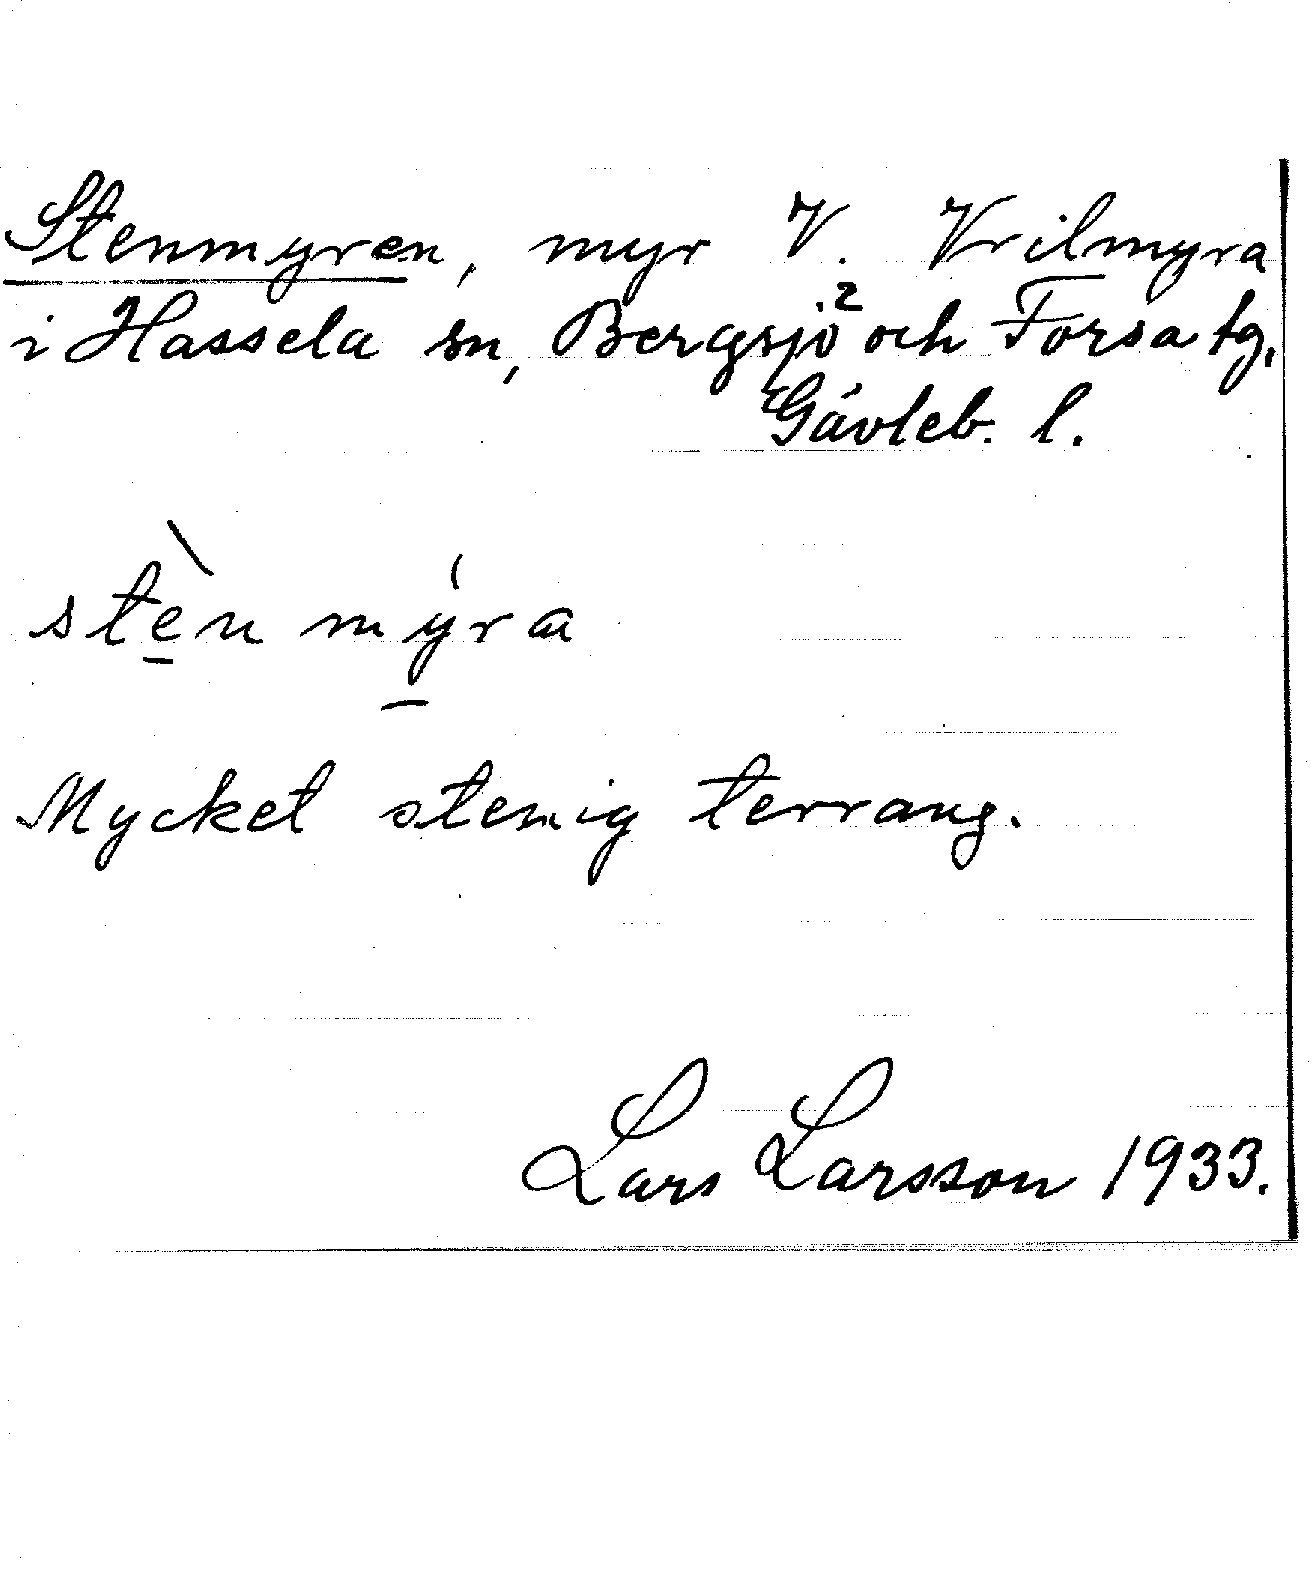 Stenmyren, myr V. Vrilmyra
i Hassela sn, Bergsjö och Forsa tg,
Gävleb. l.
stèn mýra
Mycket stenig terrang.
Lars Larsson 1933.